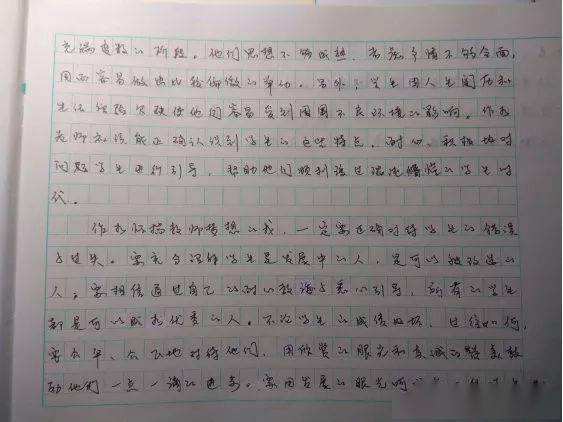 充满变数的阶段。他们思想不够成熟，考虑事情不够全面，
因而容易做出比较偏激的举动。另外，学生因人生阅历和
生活经验欠缺使他们容易受到周围不良环境的影响。作为
老师应该能正确认识到学生的这些特点，耐心、积极地对
问题学生进行引导，帮助他们顺利渡过懵懂的学生时
代。
作为怀揣教师梦想的我，一定要正确对待学生的错误
与过失。要充分理解学生是发展中的人，是可以被改造的
人。要相信通过自己的耐心教诲与悉心引导，所有的学生
都是可以成为优秀的人。不论学生的成绩好坏，过往如何，
要公平、公正地对待他们，用欣赏的眼光和真诚的赞美鼓
励他们一点一滴的进步。要用发展的眼光